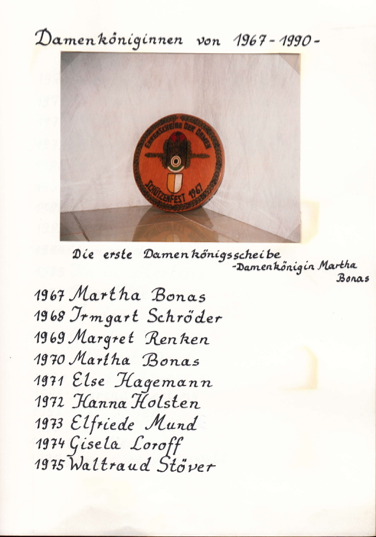 Damenköniginnen von 1967-1990-
SCHÜTZENFEST 1967
Die erste Damenkönigsscheibe
-Damenkönigin Martha
Bonas
1967 Martha Bonas
1968 Irmgart Schröder
1969 Margret Renken
1970 Martha Bonas
1971 Else Hagemann
1972 Hanna Holsten
1973 Elfriede Mund
1974 Gisela Loroff
1975 Waltraud Stöver